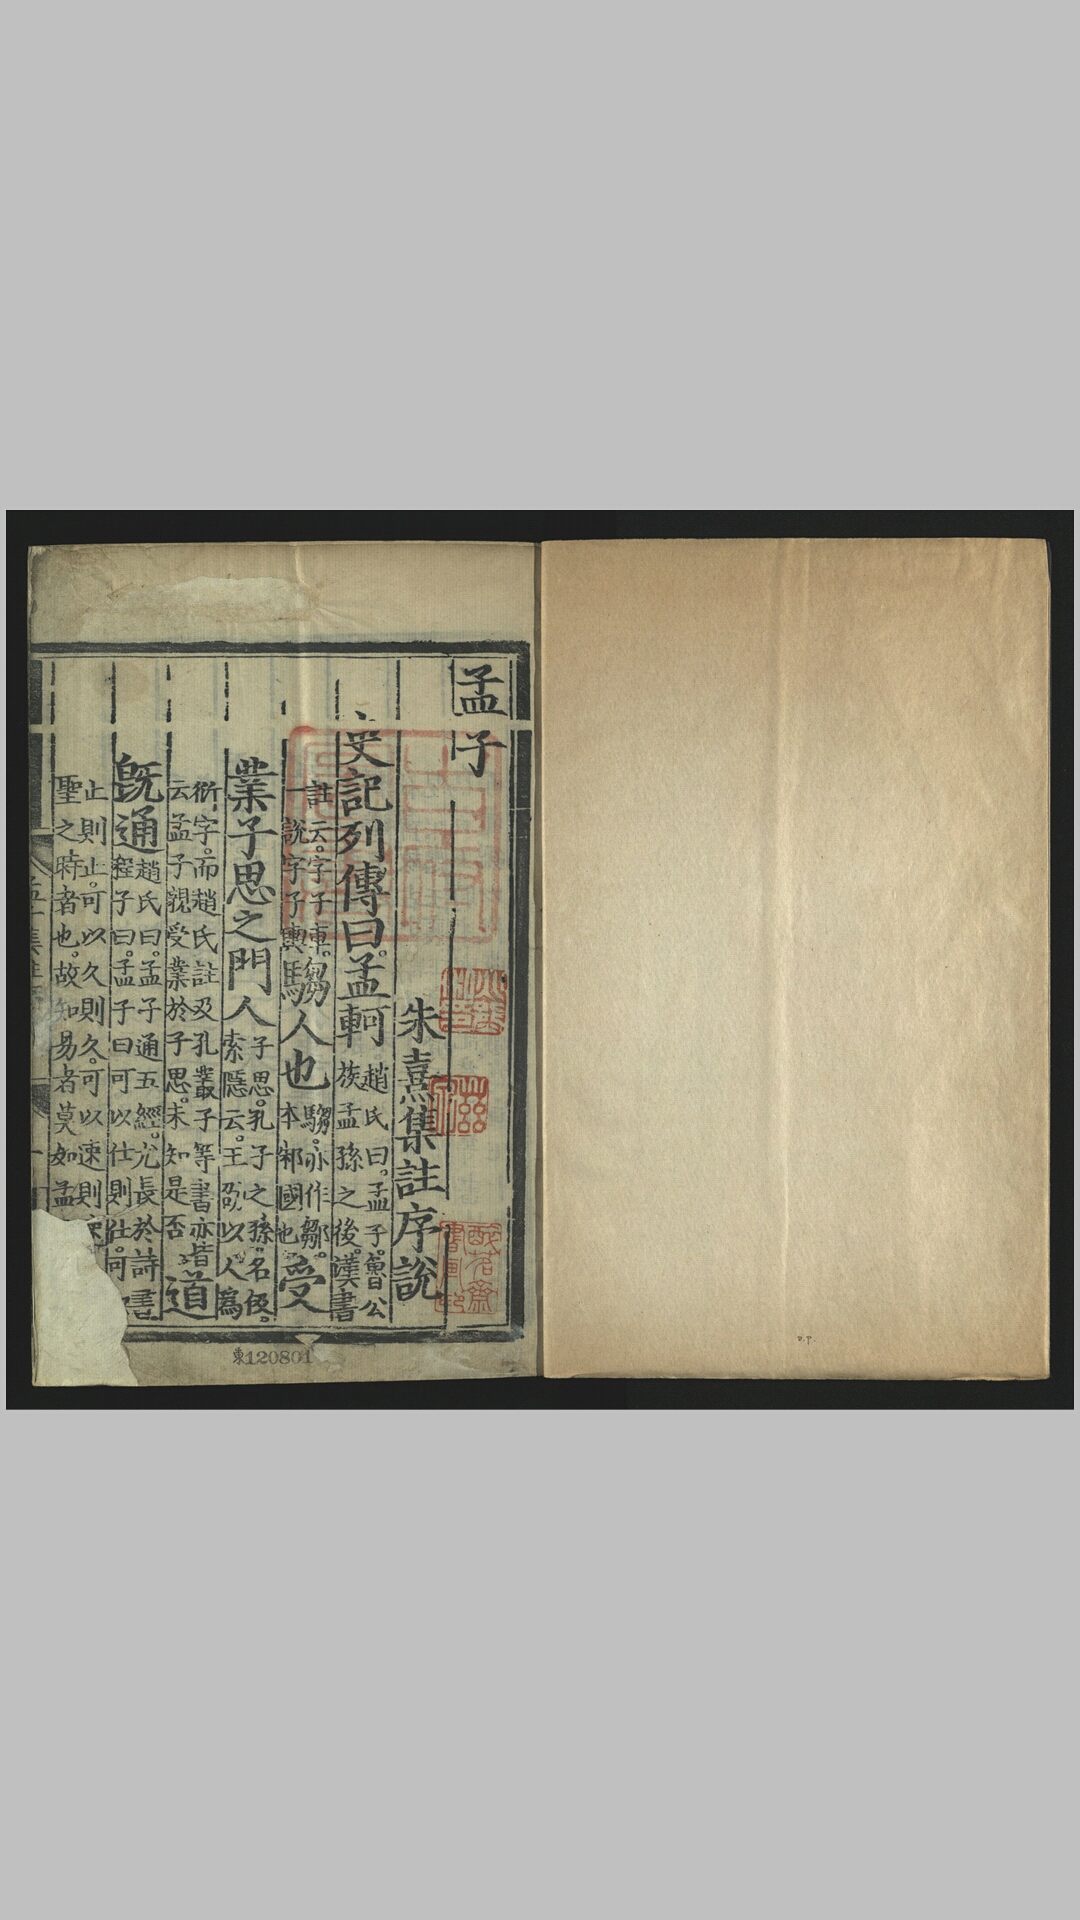 孟子
朱熹集註序說
史記列傳曰。孟軻趙氏曰。孟子。魯公
族孟孫之後。漢書
註云。字子車。
一說字子輿騶人也騶。亦作鄒。
本邾國也受
業子思之門人子思。孔子之孫。名伋。
索隱云。王劭以人為
衍字。而趙氏註及孔叢子等書亦皆
云孟子親受業於子思。未知是否道
既通趙氏曰孟子通五經。尤長於詩書。
程子曰。孟子曰可以仕則仕。可
止則止。可以久則久。可以速則
聖之時者也。故知易者莫如孟
東120801